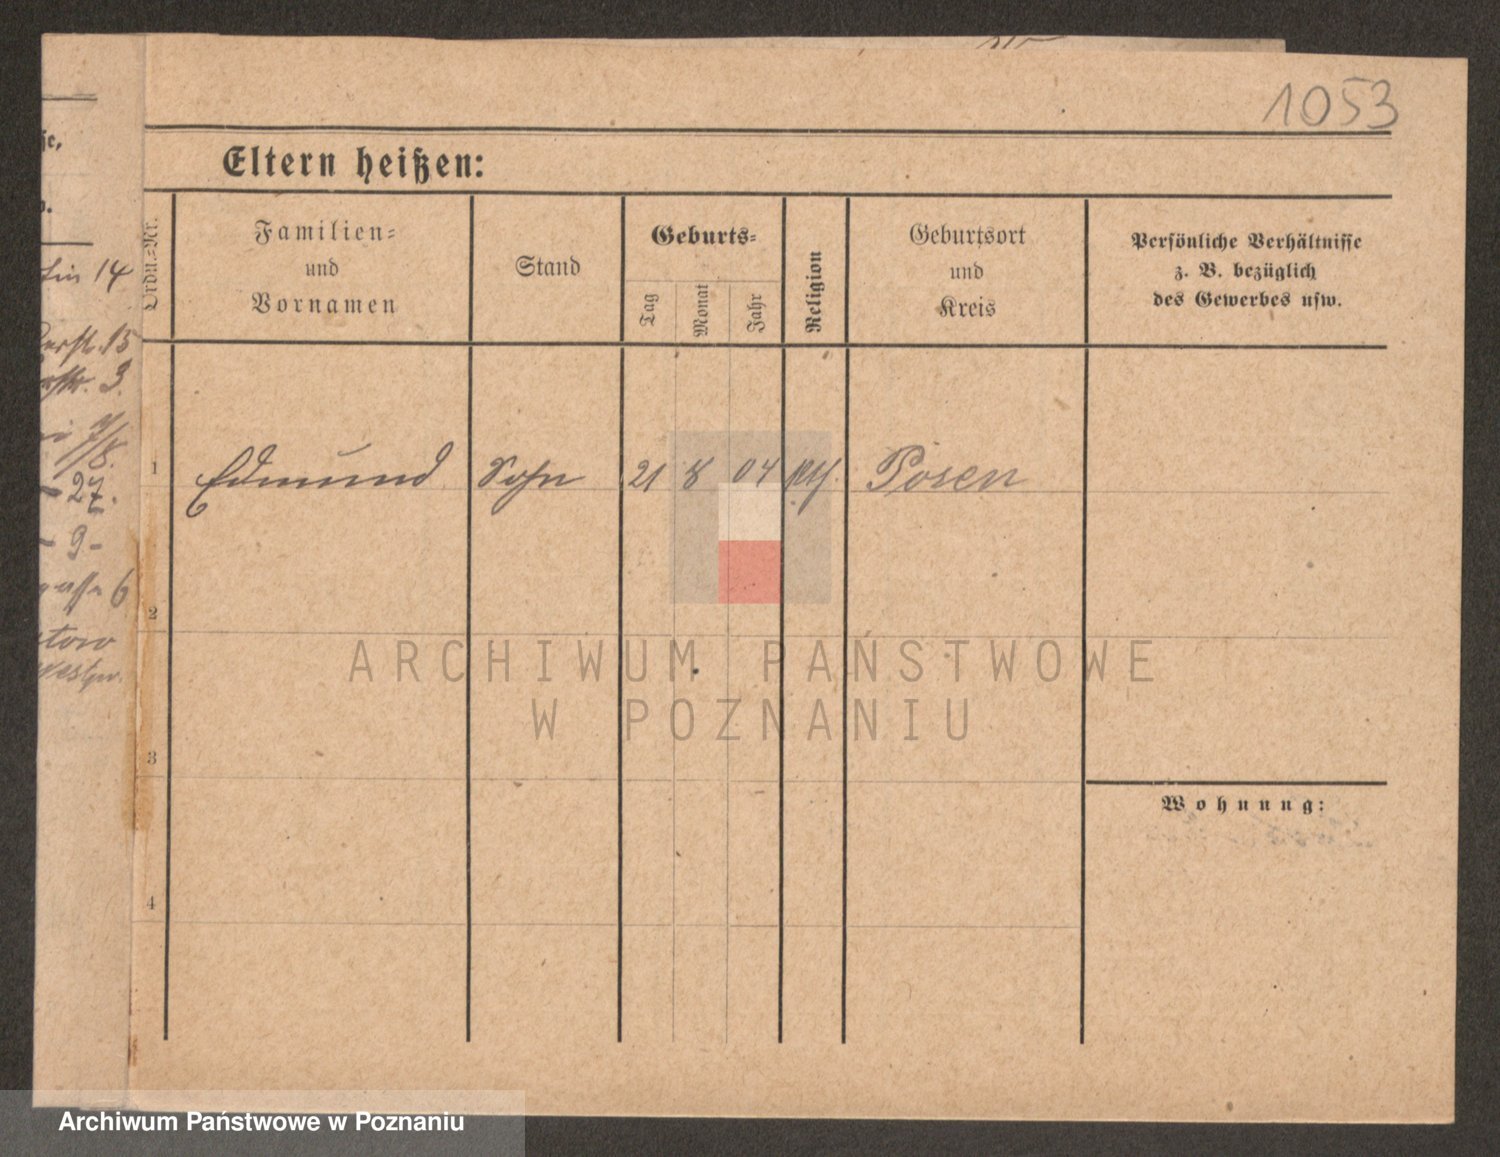 1053
Eltern heißen:
Ordn.=Nr.
Familien=
und
Vornamen
Stand
Geburts=
Tag
Monat
Jahr
Religion
Geburtsort
und
Kreis
Persönliche Verhältnisse
z. B. bezüglich
des Gewerbes usw.
14
15
3.
7/8.
27.
- 9 -
6
1 Edmund Sohn 21 8 04 Posen
2
3
4
Wohnung:
ARCHIWUM PAŃSTWOWE
W POZNANIU
Archiwum Państwowe w Poznaniu